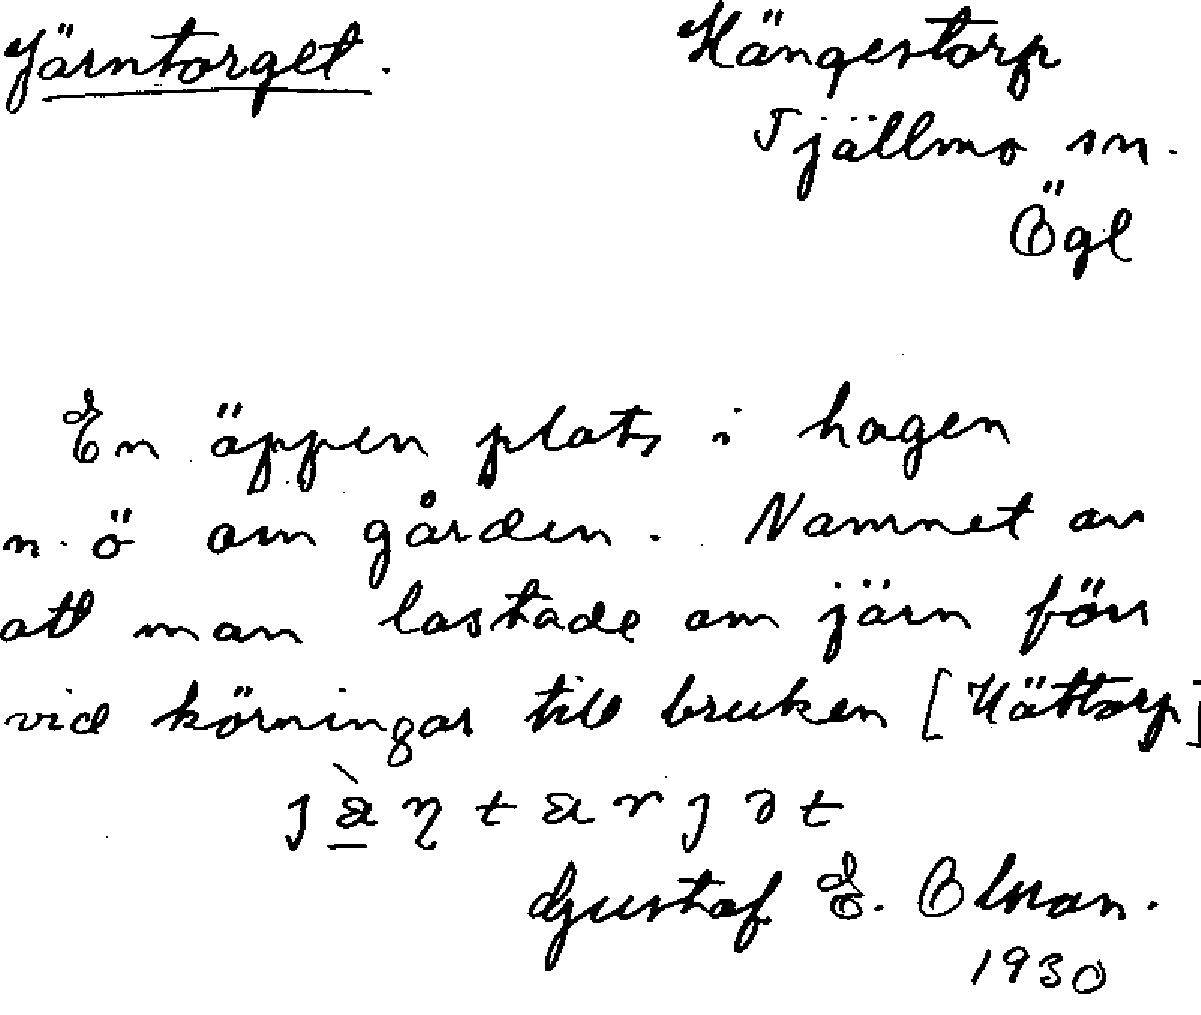 Järntorget.
Hängestorp
Tjällmo sn.
Ögl
En äppen plats i hagen
n. ö om gården. Namnet av
att man lastade om järn förr
vid körningar till bruken [Hättorp]
Gustaf E. Olsson.
1930